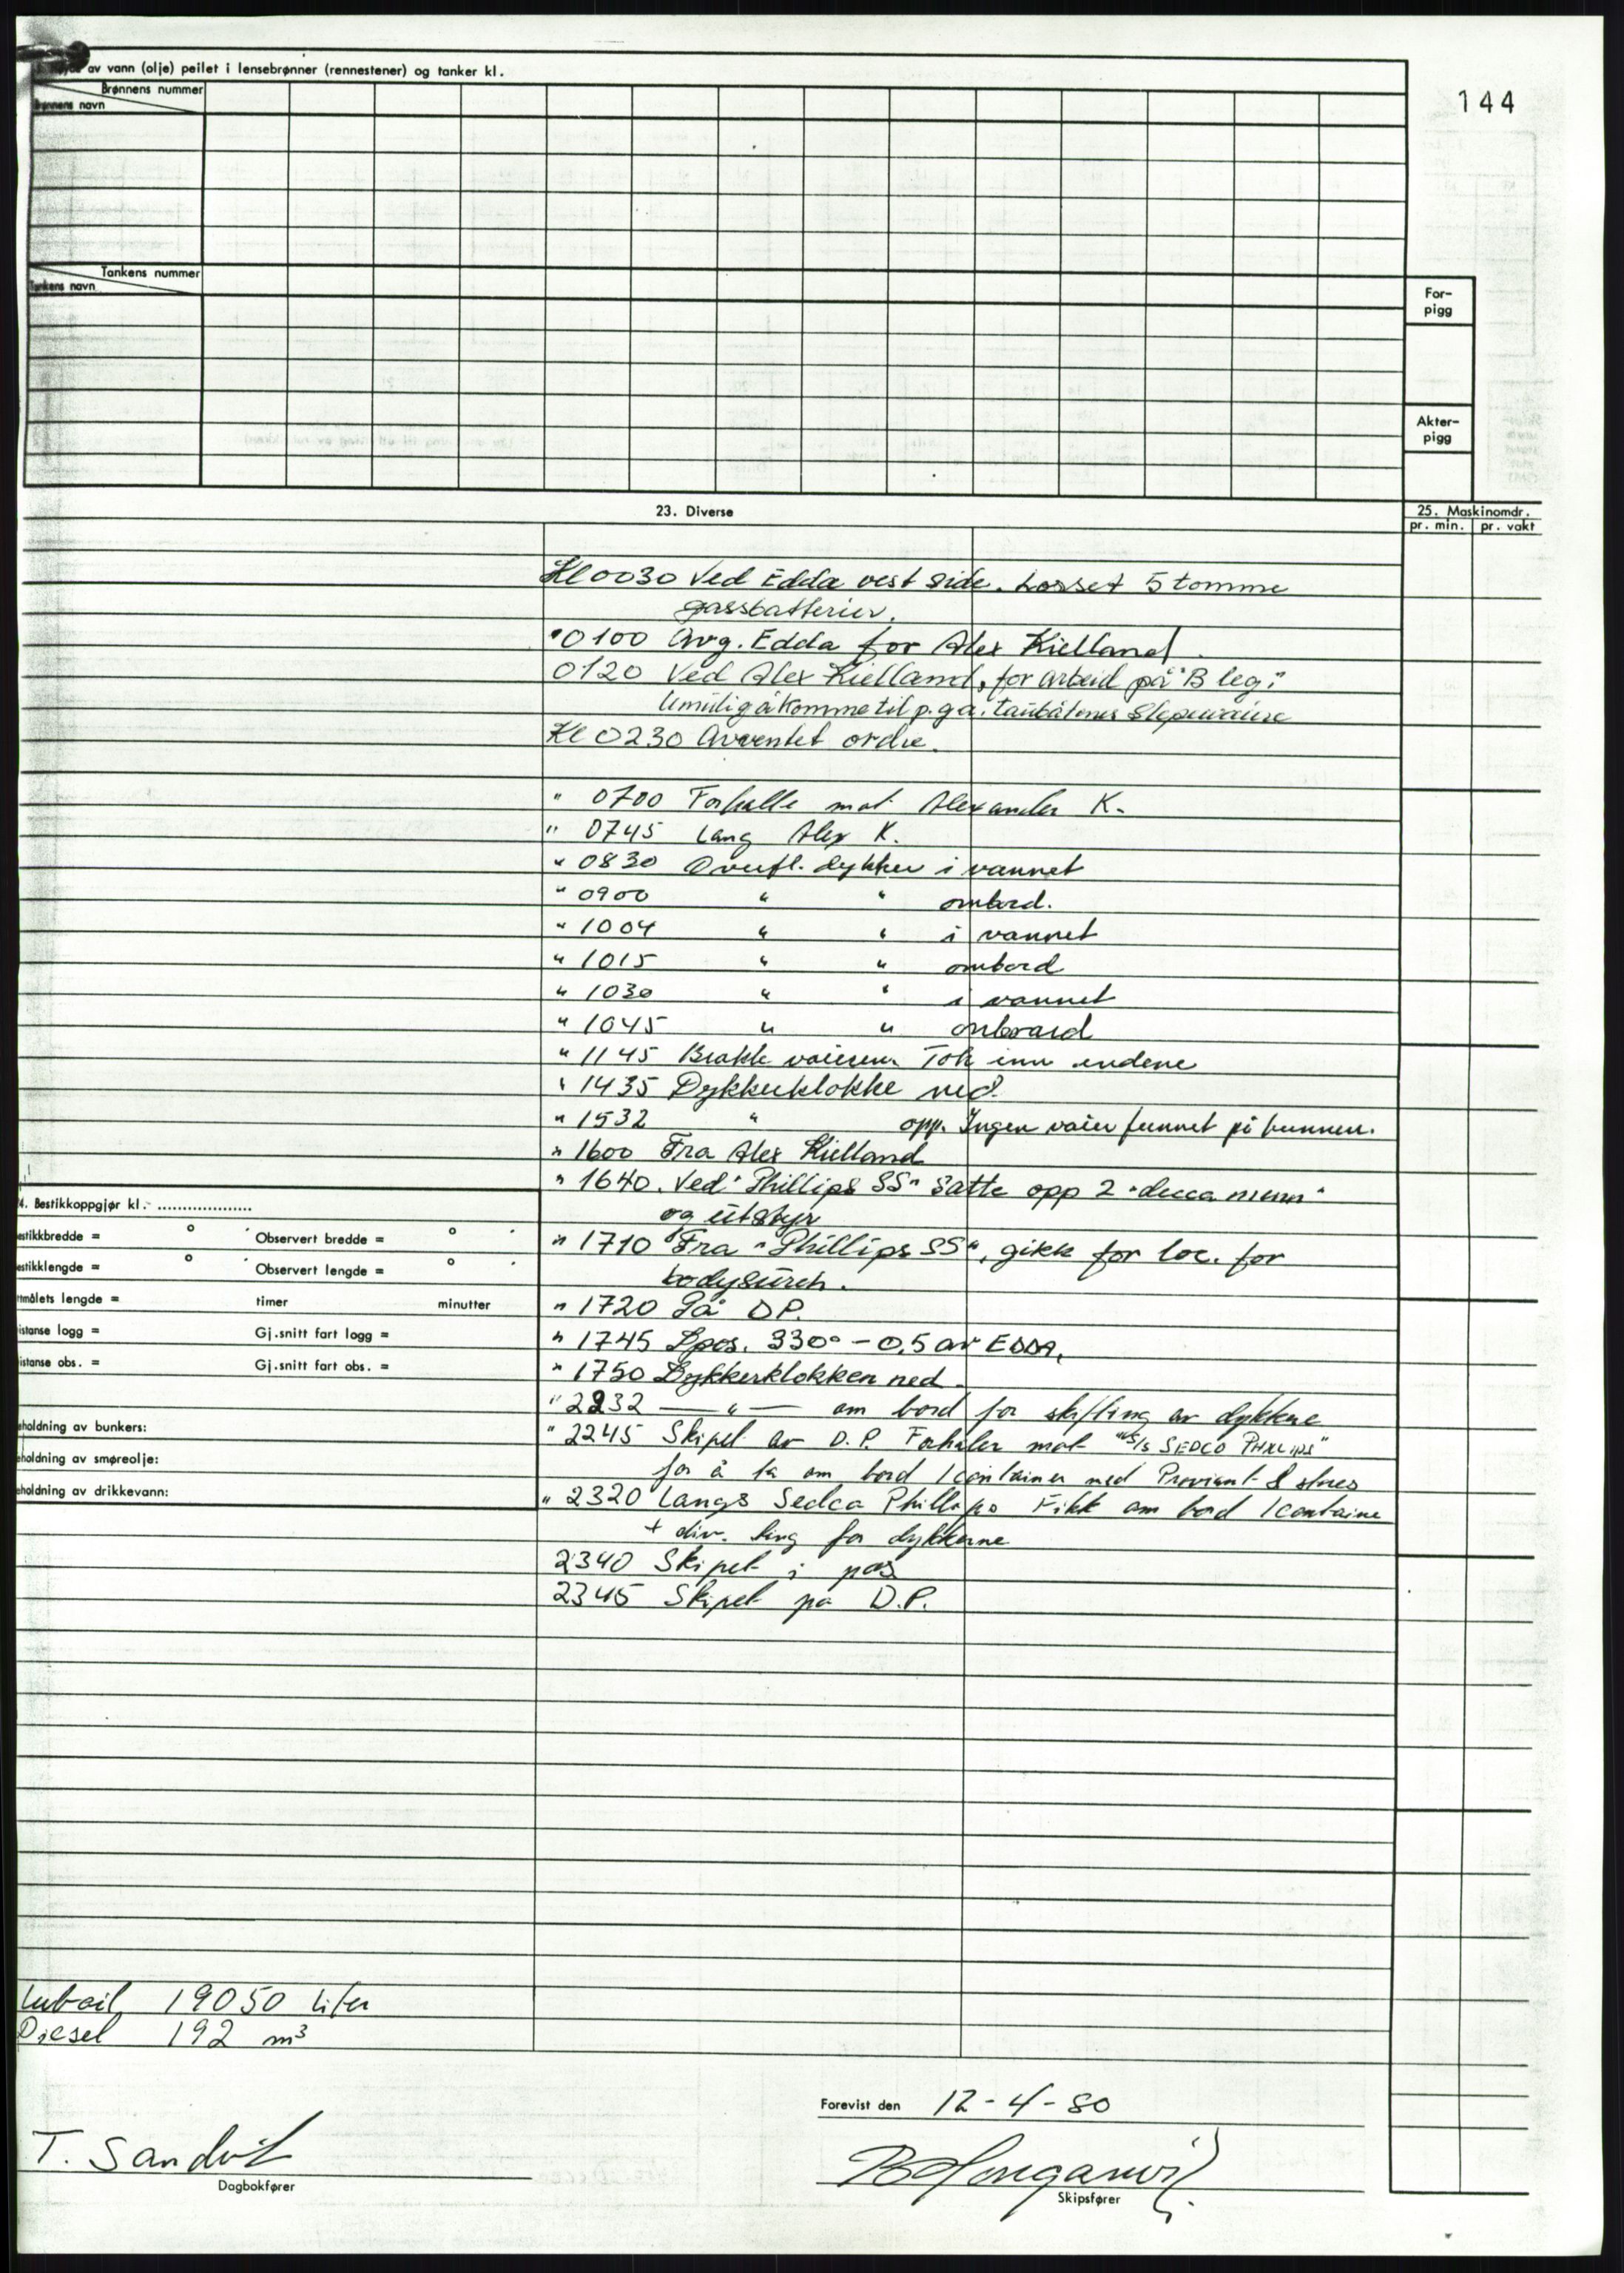 144
av vann (olje) peilet i lensebrønner (rennestener) og tanker kl.
Brønnens nummer
Brønnens navn
Tankens nummer
Tankens navn
For-
pigg
Akter-
pigg
23. Diverse
25. Maskinomdr.
pr. min. pr. vakt
Kl 0030 Ved Edda vest side. Losset 5 tomme
gassbatterier.
" 0100 Avg. Edda for Alex Kielland.
0120 Ved Alex Kielland, for arbeid på "B leg".
Umulig å komme til p.g.a. taubåtenes slepewire
Kl 0230 Avventet ordre.
" 0700 Forhalte mot Alexander K.
" 0745 Lang Alex K.
" 0830 Overfl. dykker i vannet
" 0900 " " ombord.
" 1004 " " i vannet
" 1015 " " ombord
" 1030 " " i vannet
" 1045 " " ombord
" 1145 Brakk vaieren Tok inn endene
" 1435 Dykkerklokke ned.
" 1532 " opp. Ingen vaier funnet på bunnen.
" 1600 Fra Alex Kielland
" 1640. Ved "Phillips SS" Satte opp 2 "decca menn"
og utstyr
" 1710 Fra "Phillips SS", gikk for loc. for
bodysurch.
" 1720 På DP.
" 1745 I pos. 330° - 0,5 av EDDA.
" 1750 Dykkerklokken ned.
" 2232 — " — om bord for skifting av dykkerne
" 2245 Skipet av D.P. Forhaler mot "S/S SEDCO PHILLIPS"
for å ta om bord 1 container med Proviant & stores
" 2320 Langs Sedco Phillips Fikk om bord 1 containe
+ div. ting for dykkerne
2340 Skipet i pos
2345 Skipet på D.P.
4. Bestikkoppgjør kl. ....................
estikkbredde = ° ' Observert bredde = ° '
estikklengde = ° ' Observert lengde = ° '
tmålets lengde = timer minutter
istanse logg = Gj.snitt fart logg =
istanse obs. = Gj.snitt fart obs. =
eholdning av bunkers:
eholdning av smøreolje:
eholdning av drikkevann:
Luboil 19050 Liter
Diesel 192 m³
Forevist den 12-4-80
T. Sandvik
Dagbokfører
Skipsfører